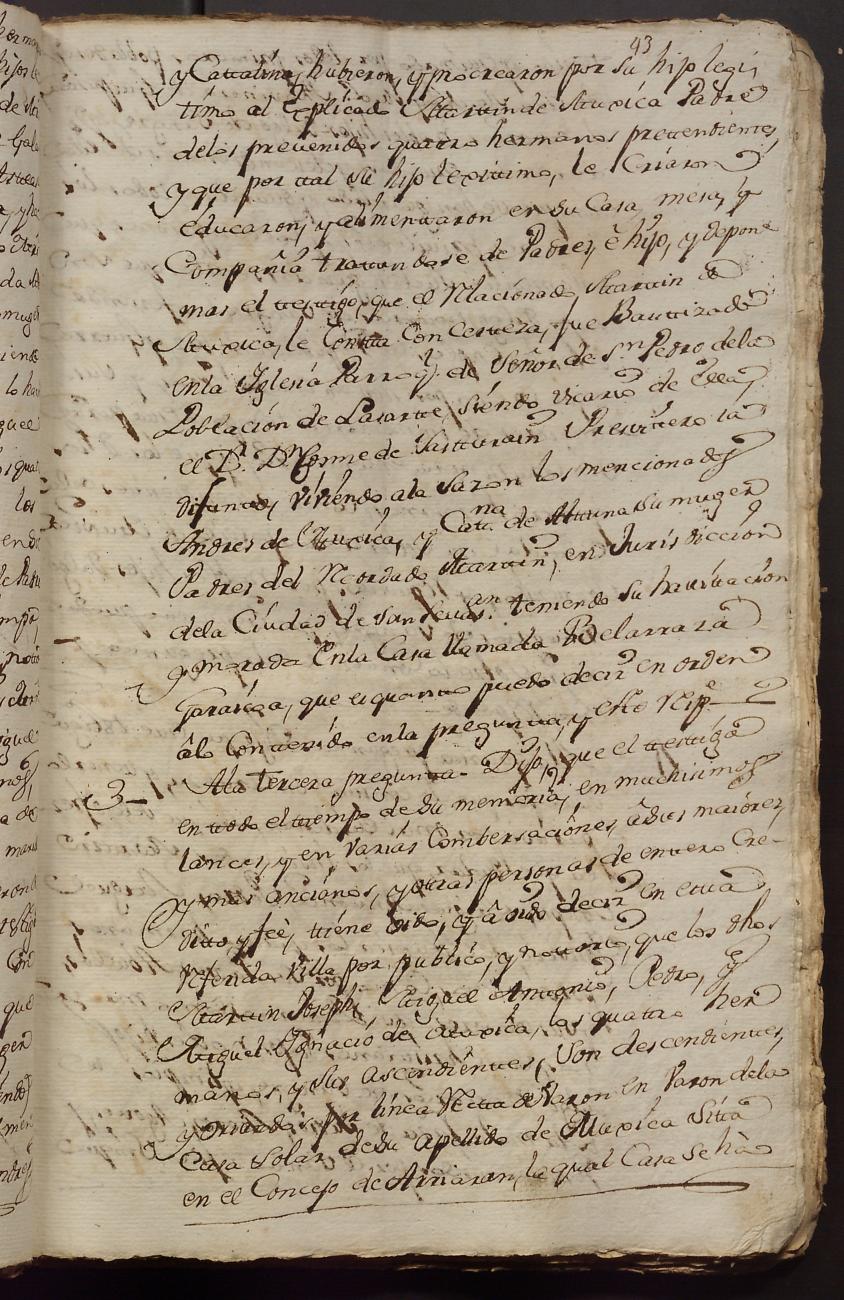 43
y Cattalina, hubieron, y procrearon por su hijo legi,
timo al Explicado Martin de Muxica Padre
delos prevenidos quatro hermanos pretendientes,
y que por ttal su hijo lexitimo, le Criaron
educaron, y alimentaron en su Casa, mesa, y
Compañia tratandose de Padres, è hijo, y depone
mas el testigo, que el Relacionado Martin de
Muxica, le Consta Con Certeza, fue Bautizado
en la Iglesia Parroql. de Señor de Sn. Pedro dela
Poblacion de Lasarte, siendo Vicario de Ella,
el Dr. Dn. Cosme de Presvittero ia
difunto, viviendo ala Sazon los mencionados
Andres de Muxica, y Catna. de Altuna su muger
Padres del Recordado Martin, en Jurisdiccion
dela Ciudad de San Sevasan. teniendo su havitacion
y morada En la Casa llamada
Garaicoa, que es quanto puede decir en orden
âlo Contenido en la pregunta, y esto respe.
3 Ala tercera pregunta. Dijo, que el testigo
en todo el tiempo de su memoria, en muchisimos
lances, y en varias Combersaciones, âsus maiores,
y mas ancianos, y otras personas de entero Cre-
dito y feè, tiene oido, y â oido decir en esta
referida Villa por publico, y notorio, que los dhos
Martin Joseph, Miguel Antonio, Pedro, y
Miguel Ignacio de Muxica, los quatro her
manos, y sus ascendientes, Son descendientes,
y oriundos por linea recta de Varon en Varon dela
Casa Solar de su apellido de Muxica Sita
en el Concejo de Arriaran, la qual Casa se hà